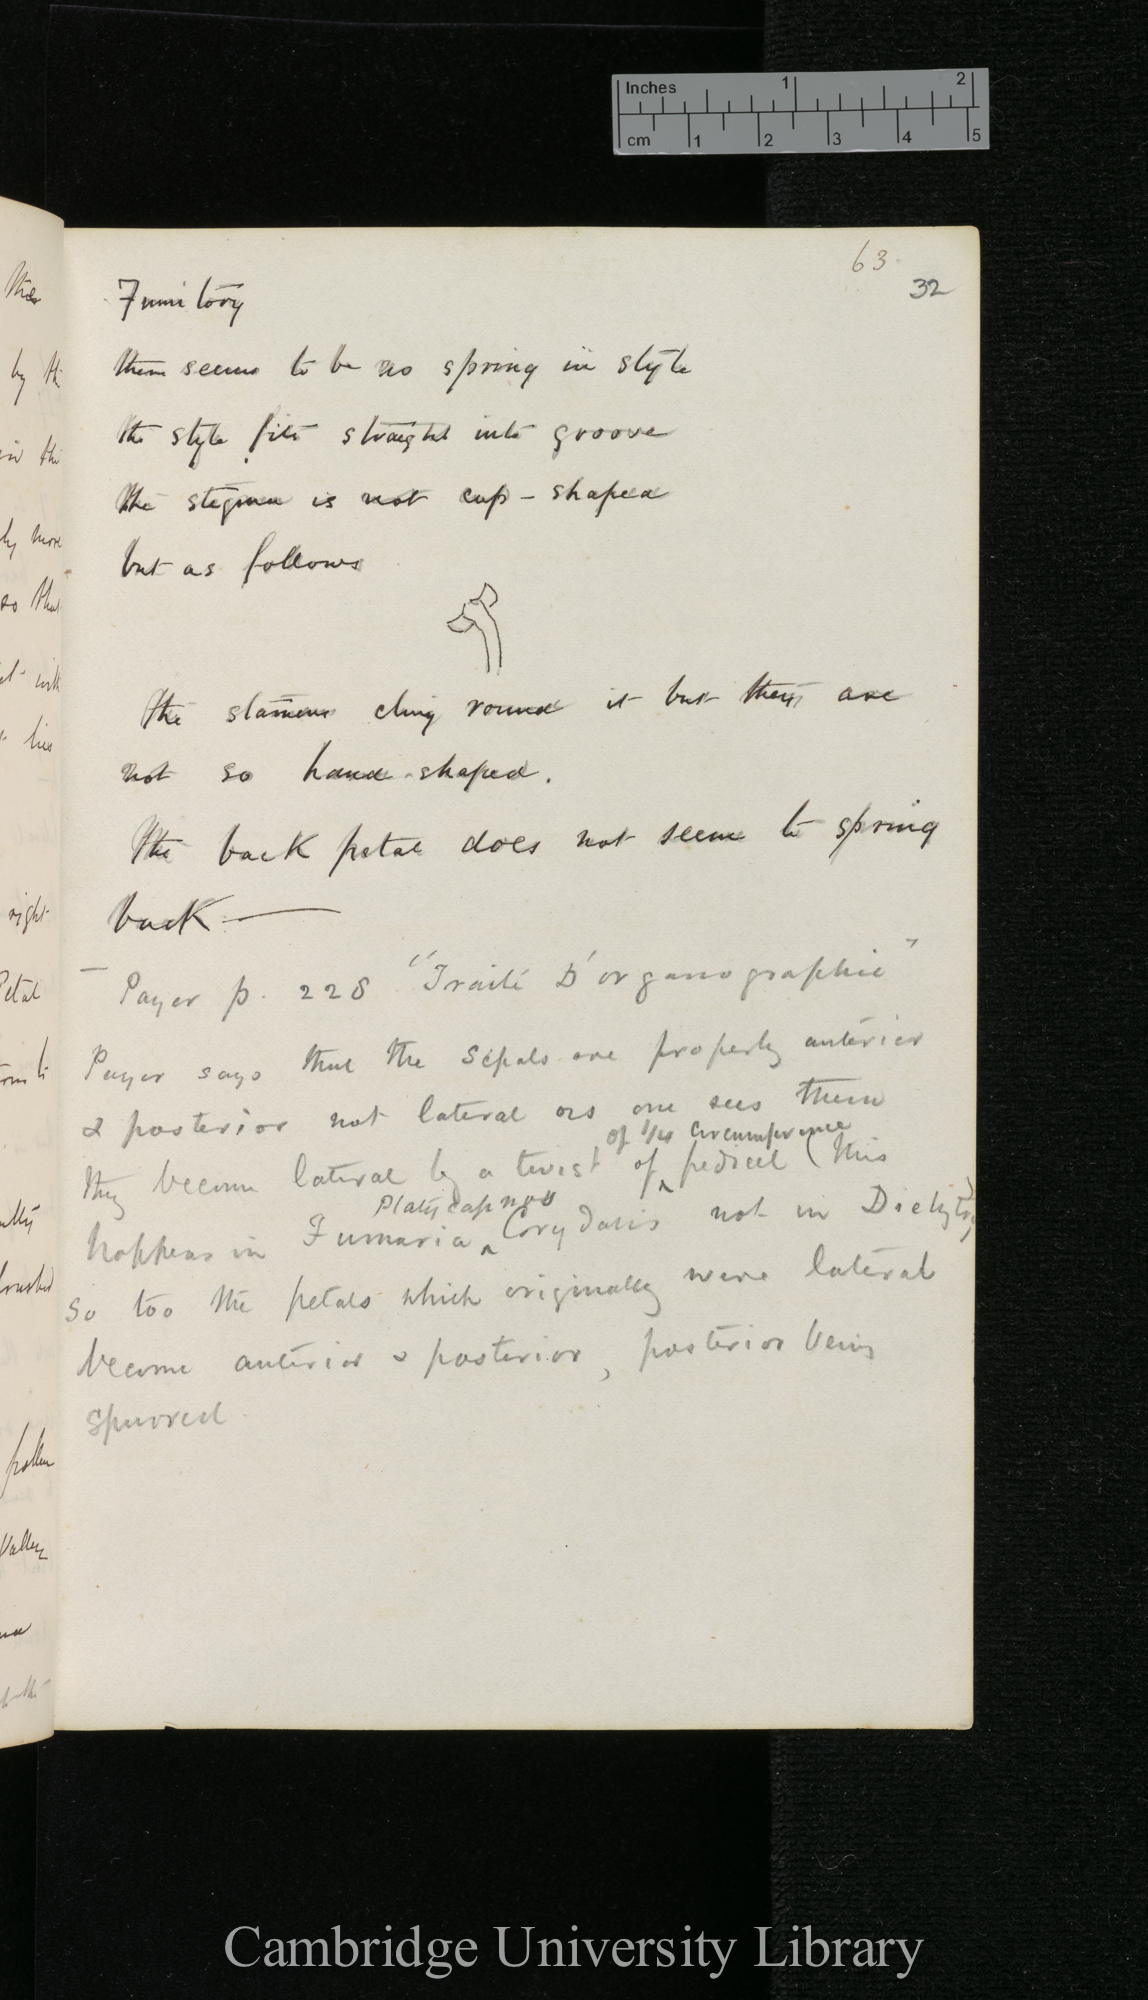 Inches 1 2
cm 1 2 3 4 5
63
32
Fumitory
there seems to be no spring in style
the style fits straight into groove
the stigma is not cup-shaped
but as follows
The stamens cling round it but they are
not so hand-shaped.
The back petal does not seem to spring
back —
— Payer p. 228 "Traité D'organographie"
Payer says that the sepals are properly anterior
& posterior not lateral as one sees them
of 1/4 circumference
they become lateral by a twist of ^ pedicel (this
Platycapnos
happens in Fumaria ^ Corydalis not in Dielytra)
so too the petals which originally were lateral
become anterior & posterior, posterior being
spurred
by the
in the
ly more
so that
with
lies
right
Petal
pollen
Cambridge University Library